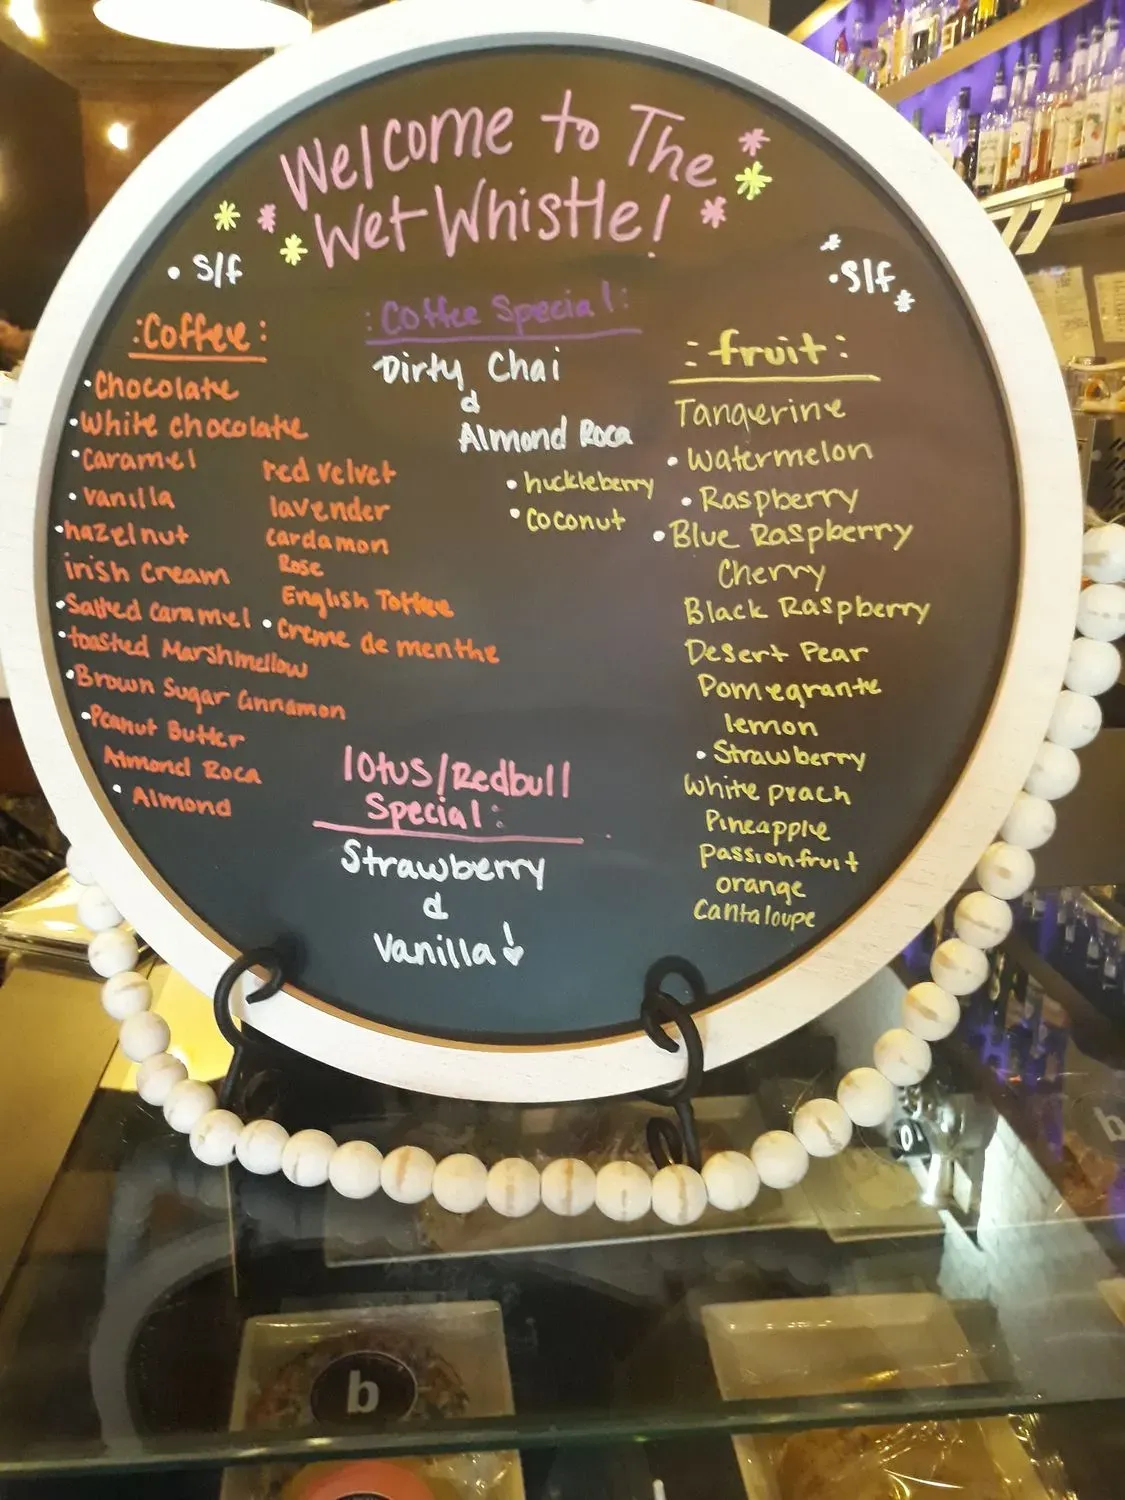 Welcome to The
Wet Whistle!
• S/f
• S/f
:Coffee:
• Chocolate
• White chocolate
• Caramel
• vanilla
• hazelnut
irish Cream
• Salted caramel
• toasted Marshmellow
• Brown Sugar Cinnamon
• Peanut Butter
Almond Roca
• Almond
red velvet
lavender
cardamon
Rose
English Toffee
• Creme de menthe
:Coffee Special:
Dirty Chai
&
Almond Roca
• huckleberry
• coconut
:fruit:
Tangerine
• Watermelon
• Raspberry
• Blue Raspberry
Cherry
Black Raspberry
Desert Pear
Pomegrante
lemon
• Strawberry
White peach
Pineapple
Passionfruit
orange
Cantaloupe
lotus/Redbull
Special:
Strawberry
&
Vanilla!
b
b